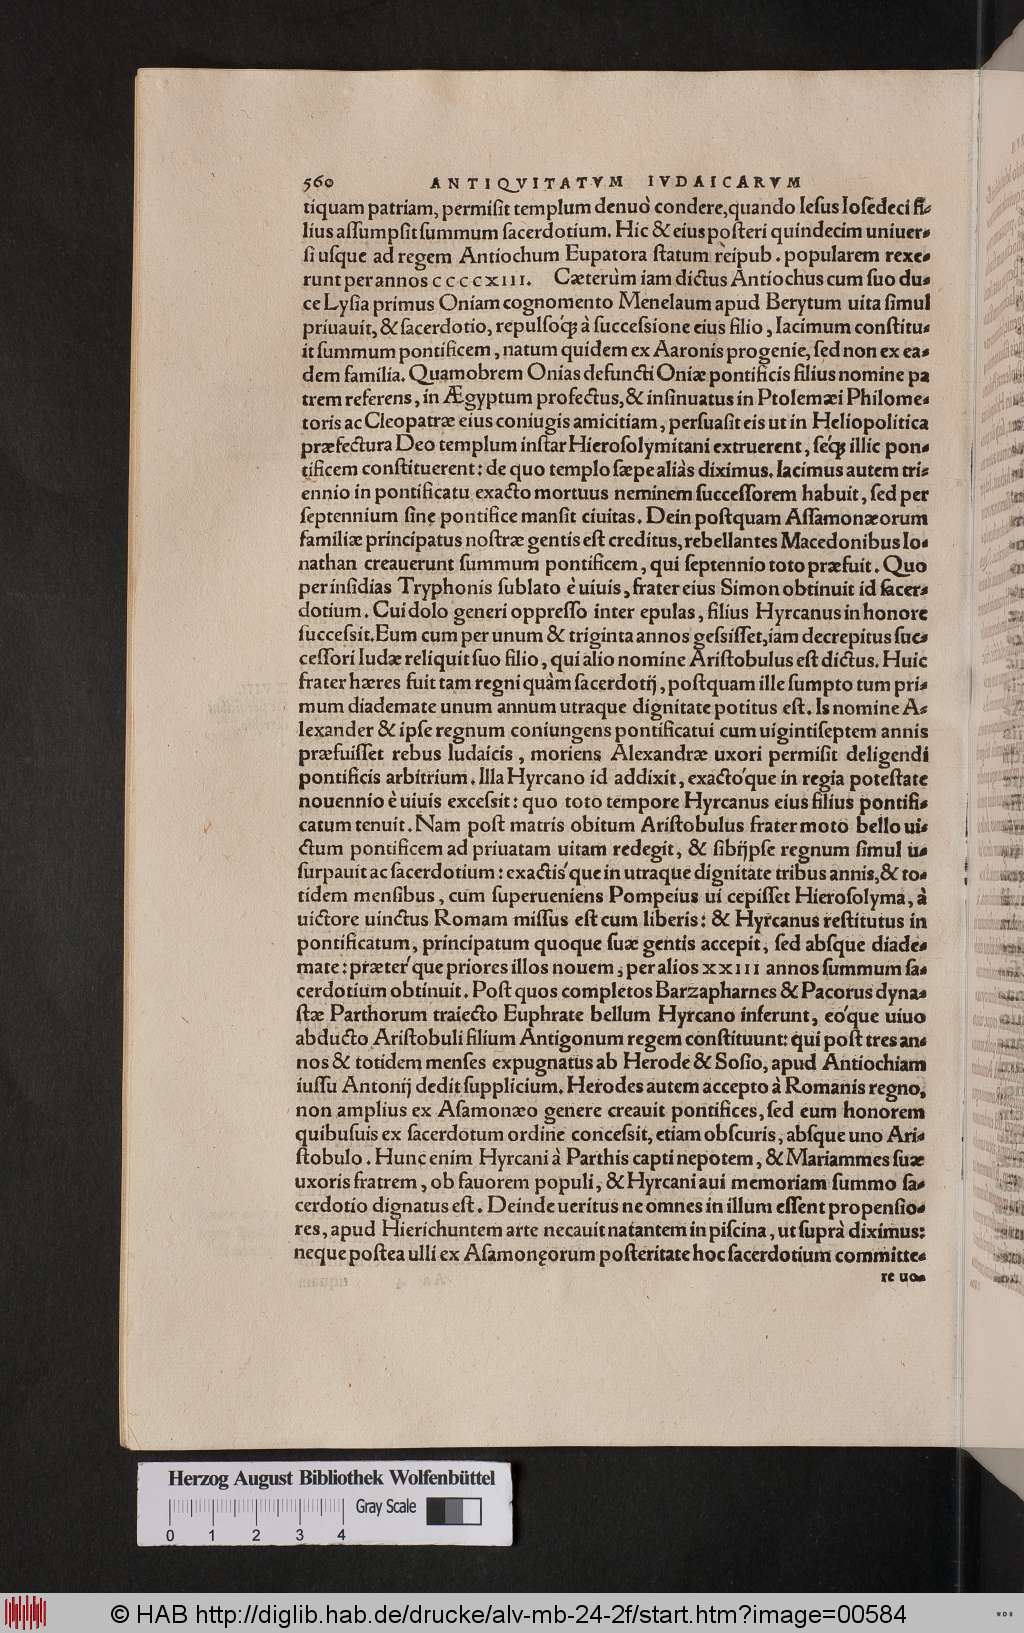 560 ANTIQVITATVM IVDAICARVM
tiquam patriam, permiſit templum denuò condere, quando Ieſus Ioſedeci fi⸗
lius aſſumpſit ſummum ſacerdotium. Hic & eius poſteri quindecim uniuer⸗
ſi uſque ad regem Antiochum Eupatora ſtatum reipub. popularem rexe⸗
runt per annos CCCCXIII. Cæterùm iam dictus Antiochus cum ſuo du⸗
ce Lyſia primus Oniam cognomento Menelaum apud Berytum uita ſimul
priuauit, & ſacerdotio, repulſoq́ue à ſucceſsione eius filio, Iacimum conſtitu⸗
it ſummum pontificem, natum quidem ex Aaronis progenie, ſed non ex ea⸗
dem familia. Quamobrem Onias defuncti Oniæ pontificis filius nomine pa
trem referens, in Ægyptum profectus, & inſinuatus in Ptolemæi Philome⸗
toris ac Cleopatræ eius coniugis amicitiam, perſuaſit eis ut in Heliopolitica
præfectura Deo templum inſtar Hieroſolymitani extruerent, ſeq́ꝫ illic pon⸗
tificem conſtituerent: de quo templo ſæpe aliàs diximus. Iacimus autem tri⸗
ennio in pontificatu exacto mortuus neminem ſucceſſorem habuit, ſed per
ſeptennium ſine pontifice manſit ciuitas. Dein poſtquam Aſſamonæorum
familiæ principatus noſtræ gentis eſt creditus, rebellantes Macedonibus Io⸗
nathan creauerunt ſummum pontificem, qui ſeptennio toto præfuit. Quo
per inſidias Tryphonis ſublato è uiuis, frater eius Simon obtinuit id ſacer⸗
dotium. Cui dolo generi oppreſſo inter epulas, filius Hyrcanus in honore
ſucceſsit. Eum cum per unum & triginta annos geſsiſſet, iam decrepitus ſuc⸗
ceſſori Iudæ reliquit ſuo filio, qui alio nomine Ariſtobulus eſt dictus. Huic
frater hæres fuit tam regni quàm ſacerdotij, poſtquam ille ſumpto tum pri⸗
mum diademate unum annum utraque dignitate potitus eſt. Is nomine A⸗
lexander & ipſe regnum coniungens pontificatui cum uigintiſeptem annis
præfuiſſet rebus Iudaicis, moriens Alexandræ uxori permiſit deligendi
pontificis arbitrium. Illa Hyrcano id addixit, exactoq́ue in regia poteſtate
nouennio è uiuis exceſsit: quo toto tempore Hyrcanus eius filius pontifi⸗
catum tenuit. Nam poſt matris obitum Ariſtobulus frater moto bello ui⸗
ctum pontificem ad priuatam uitam redegit, & ſibijpſe regnum ſimul u⸗
ſurpauit ac ſacerdotium: exactisq́ue in utraque dignitate tribus annis, & to⸗
tidem menſibus, cum ſuperueniens Pompeius ui cepiſſet Hieroſolyma, à
uictore uinctus Romam miſſus eſt cum liberis: & Hyrcanus reſtitutus in
pontificatum, principatum quoque ſuæ gentis accepit, ſed abſque diade⸗
mate: præterq́ue priores illos nouem, per alios XXIII annos ſummum ſa⸗
cerdotium obtinuit. Poſt quos completos Barzapharnes & Pacorus dyna⸗
ſtæ Parthorum traiecto Euphrate bellum Hyrcano inferunt, eoq́ue uiuo
abducto Ariſtobuli filium Antigonum regem conſtituunt: qui poſt tres an⸗
nos & totidem menſes expugnatus ab Herode & Soſio, apud Antiochiam
iuſſu Antonij dedit ſupplicium. Herodes autem accepto à Romanis regno,
non amplius ex Aſamonæo genere creauit pontifices, ſed eum honorem
quibuſuis ex ſacerdotum ordine conceſsit, etiam obſcuris, abſque uno Ari⸗
ſtobulo. Hunc enim Hyrcani à Parthis capti nepotem, & Mariammes ſuæ
uxoris fratrem, ob fauorem populi, & Hyrcani aui memoriam ſummo ſa⸗
cerdotio dignatus eſt. Deinde ueritus ne omnes in illum eſſent propenſio⸗
res, apud Hierichuntem arte necauit natantem in piſcina, ut ſuprà diximus:
neque poſtea ulli ex Aſamonęorum poſteritate hoc ſacerdotium committe⸗
re uo⸗
Herzog August Bibliothek Wolfenbüttel
Gray Scale
0 1 2 3 4
© HAB http://diglib.hab.de/drucke/alv-mb-24-2f/start.htm?image=00584